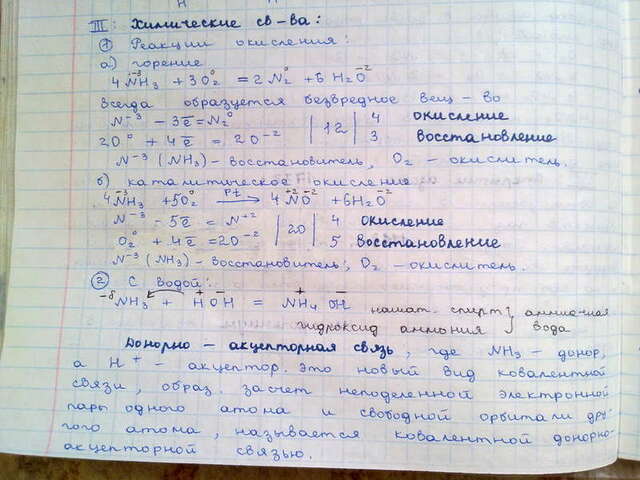 III: Химические св-ва:
① Реакции окисления:
а) горение
4N⁻³H₃ + 3O₂⁰ = 2N₂⁰ + 6H₂O⁻²
всегда образуется безвредное вещ-во
N⁻³ - 3ē = N₂⁰ | 12 | 4 окисление
2O⁰ + 4ē = 2O⁻² 3 восстановление
N⁻³ (NH₃) - восстановитель, O₂ - окислитель.
б) каталитическое окисления
4N⁻³H₃ + 5O₂⁰ Pt→ 4N⁺²O⁻² + 6H₂O⁻²
N⁻³ - 5ē = N⁺² | 20 | 4 окисление
O₂⁰ + 4ē = 2O⁻² 5 восстановление
N⁻³ (NH₃) - восстановитель, O₂ - окислитель.
② С водой:
-δNH₃ + H⁺OH⁻ = NH₄⁺ OH⁻ нашат. спирт } аммиачная
гидроксид аммония } вода
Донорно - акцепторная связь, где NH₃ - донор,
а H⁺ - акцептор. это новый вид ковалентной
связи, образ. засчет неподеленной электронной
пары одного атома и свободной орбитали дру-
гого атома, называется ковалентной донорно-
акцепторной связью.